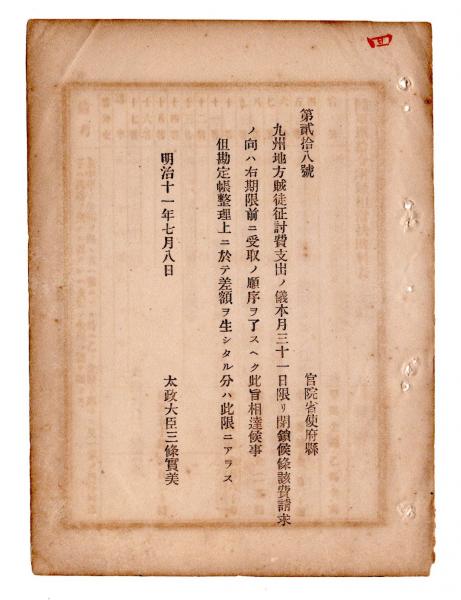 第貳拾八號
官院省使府縣
九州地方賊徒征討費支出ノ儀本月三十一日限リ閉鎖候條該費請求
ノ向ハ右期限前ニ受取ノ順序ヲ了スヘク此旨相達候事
但勘定帳整理上ニ於テ差額ヲ生シタル分ハ此限ニアラス
明治十一年七月八日
太政大臣三條實美